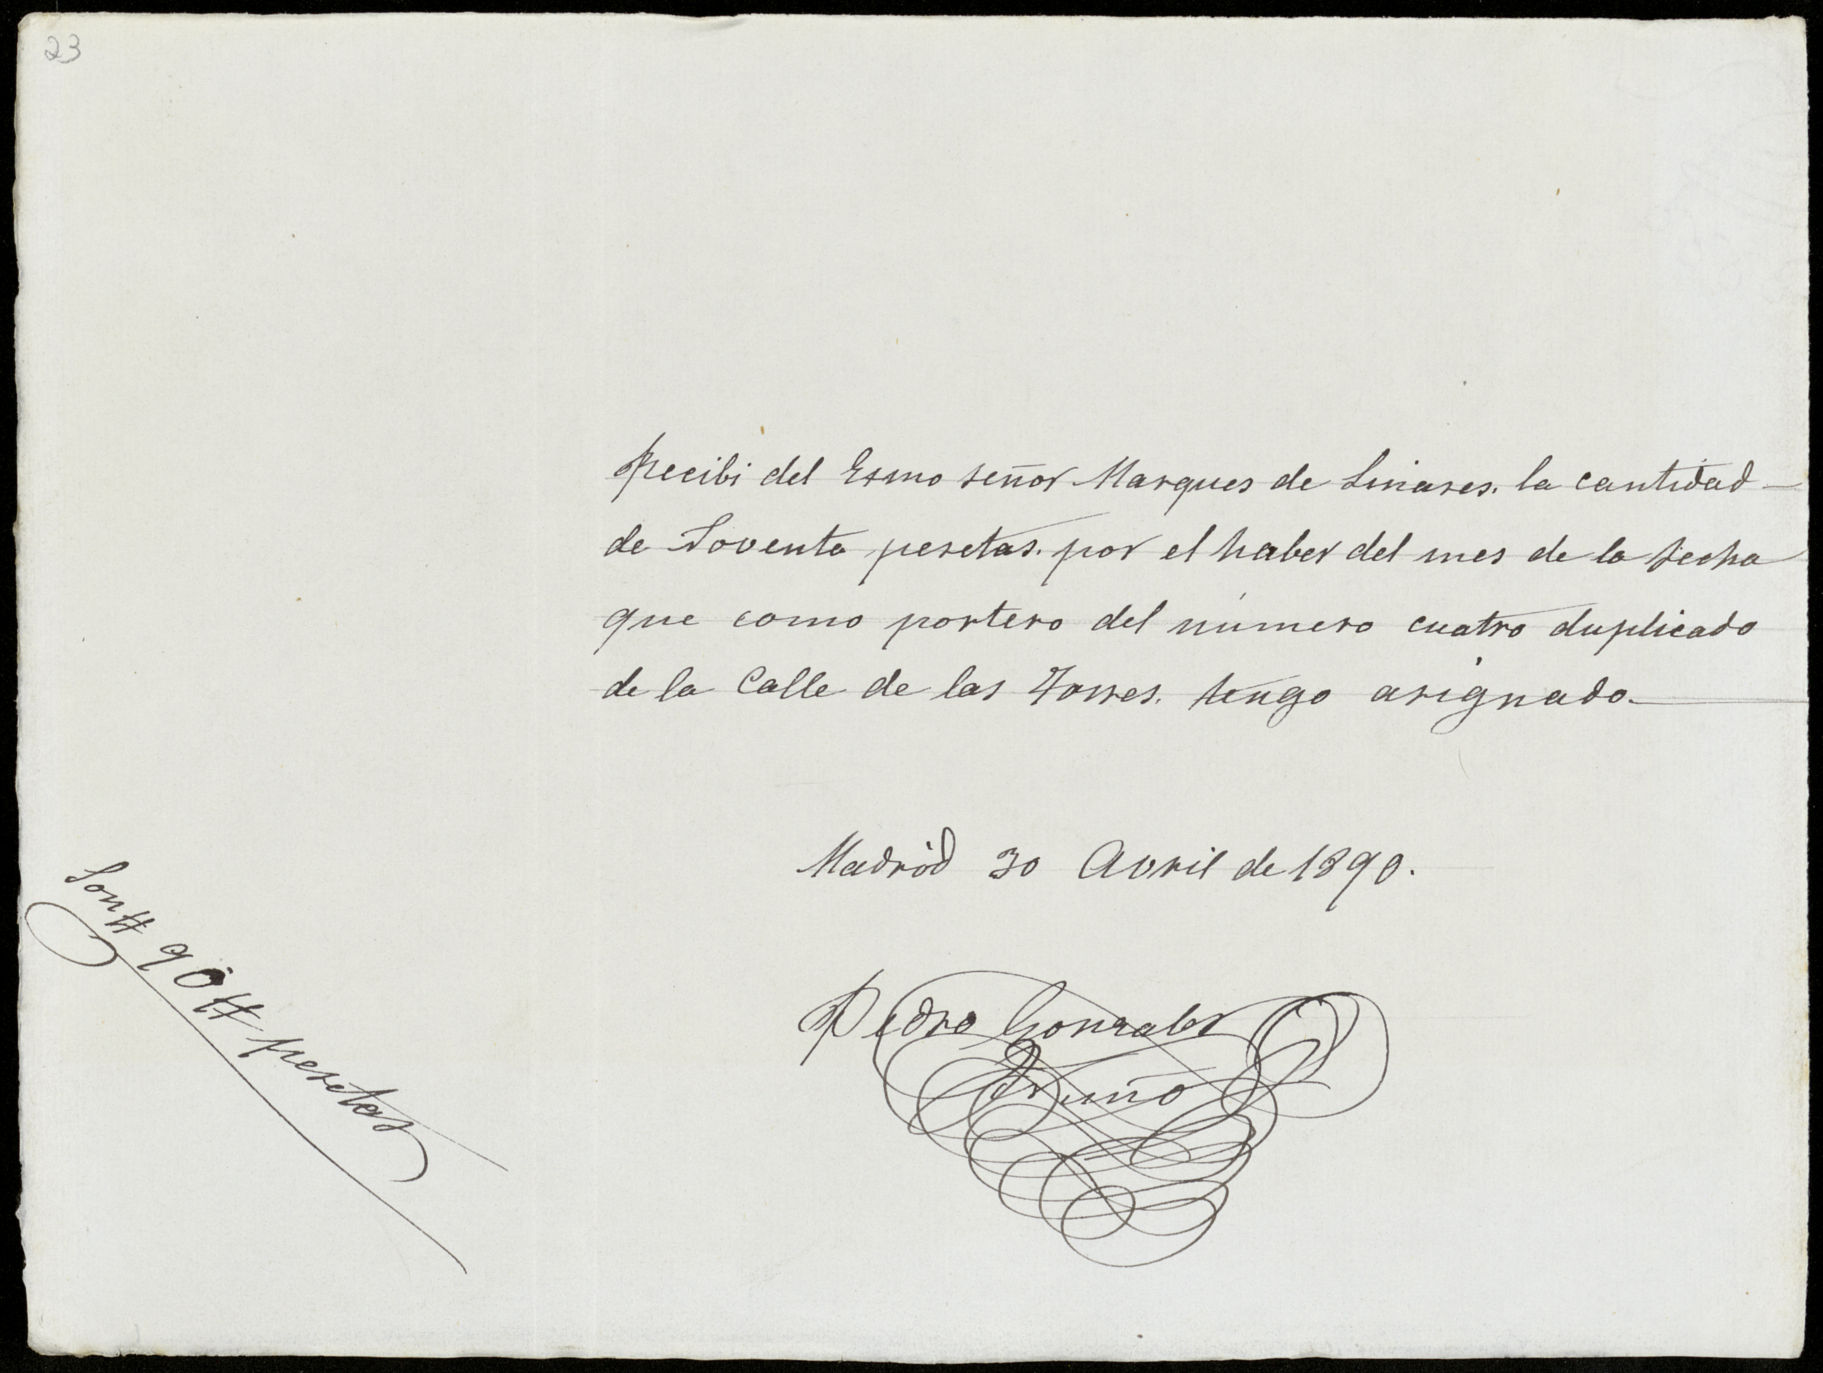 23
Recibi del Esmo señor Marques de Linares. la cantidad
de Noventa pesetas. por el haber del mes de la fecha
que como portero del número cuatro duplicado
de la Calle de las Torres. tengo asignado.
Madrid 30 Avril de 1890.
Pedro Gonzalez
Truño
Son # 90 # pesetas